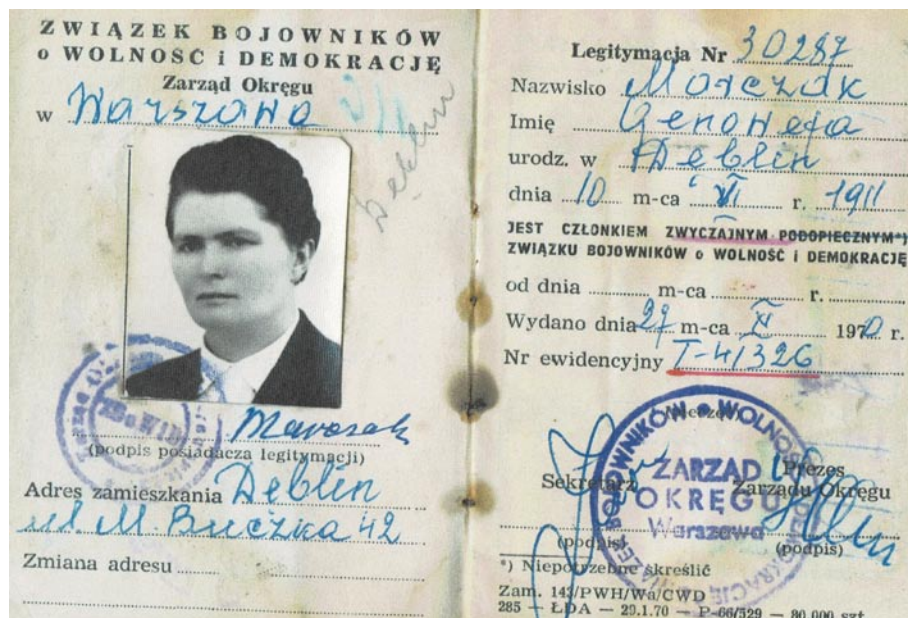 ZWIĄZEK BOJOWNIKÓW
o WOLNOŚĆ i DEMOKRACJĘ
Zarząd Okręgu
w Warszawa
Dęblin
(podpis posiadacza legitymacji)
Adres zamieszkania Dęblin
ul. M. Buczka 42
Zmiana adresu
Legitymacja Nr 30287
Nazwisko
Imię Genowefa
urodz. w Dęblin
dnia 10 m-ca VI r. 1911
JEST CZŁONKIEM ZWYCZAJNYM PODOPIECZNYM*)
ZWIĄZKU BOJOWNIKÓW o WOLNOŚĆ i DEMOKRACJĘ
od dnia m-ca r.
Wydano dnia 27 m-ca XI 1970 r.
Nr ewidencyjny T-41326
Sekretarz
Prezes
Zarządu Okręgu
ZARZĄD
OKRĘGU
Warszawa
(podpis)
(podpis)
*) Niepotrzebne skreślić
Zam. 143/PWH/Wa/CWD
285 — ŁDA — 29.1.70 — P-66/529 — 80.000 szt.